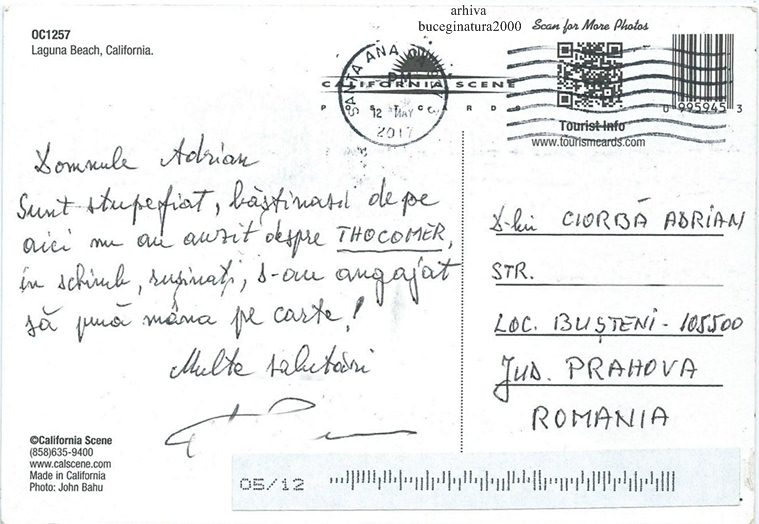 OC1257
Laguna Beach, California.
arhiva
buceginatura2000
Scan for More Photos
SANTA ANA
PM
12 MAY
2017
CALIFORNIA SCENE
POSTCARDS
0 995945 3
Tourist Info
www.tourismcards.com
Domnule Adrian
Sunt stupefiat, băștinașii de pe
aici nu au auzit despre THOCOMER,
în schimb, rușinați, s-au angajat
să pună mâna pe carte!
Multe salutări
D-lui CIORBĂ ADRIAN
STR.
LOC. BUȘTENI - 105500
JUD. PRAHOVA
ROMANIA
©California Scene
(858)635-9400
www.calscene.com
Made in California
Photo: John Bahu
05/12